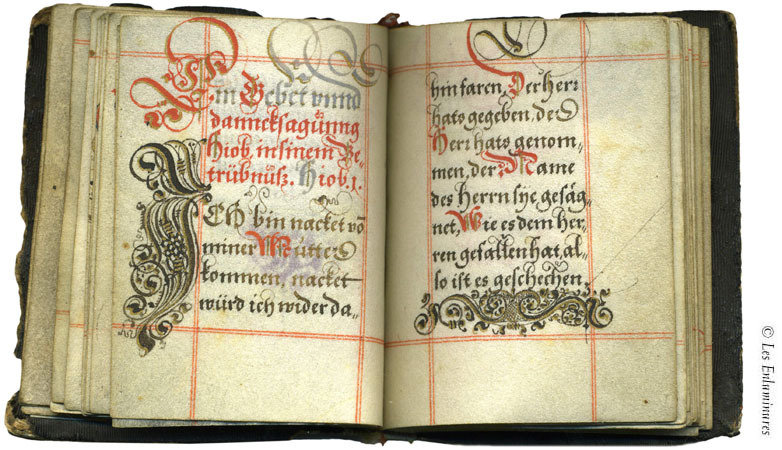 Ein Gebet vnnd
dancksagŭnng
Hiob, in sinem Be⸗
trübnüsz. Hiob. 1.
ICH bin nacket vō
miner Mŭtter
kommen, nacket
würd ich wider da⸗
hin faren, Der herr
hats gegeben, der
Herr hats genom⸗
men, der Name
des herrn sye gesäg⸗
net, Wie es dem her⸗
ren gefallen hat, al⸗
so ist es geschechen.
© Les Enluminures